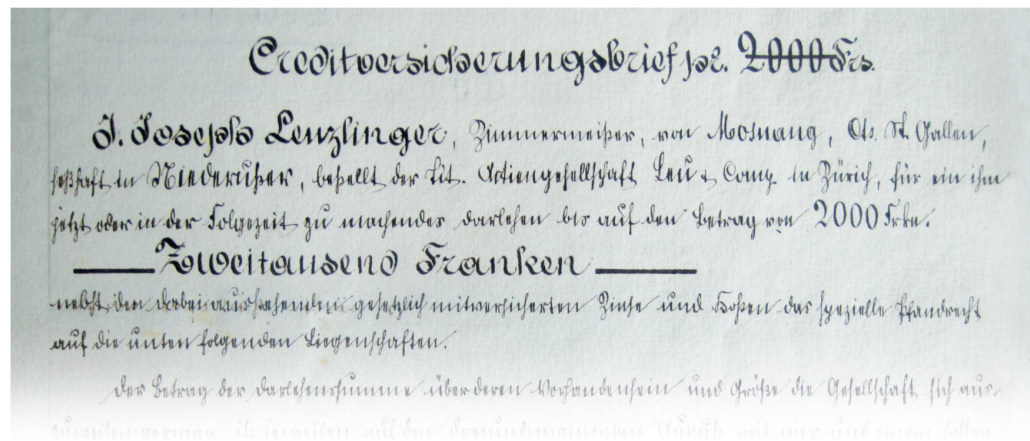 Creditversicherungsbrief pr. 2000 Frs.
J. Joseph Lenzlinger, Zimmermeister, von Mosnang, Kts. St. Gallen,
seßhaft in Niederuster, bestellt der Tit. Actiengesellschaft Leu & Comp. in Zürich, für ein ihm
jetzt oder in der Folgezeit zu machendes Darlehen bis auf den Betrag von 2000 Frkn.
Zweitausend Franken
nebst den dabei ausstehenden gesetzlich mitversicherten Zinse und Kosten das spezielle Pfandrecht
auf die unten folgenden Liegenschaften.
Der Betrag der Darlehenssumme über deren Vorhandensein und Größe die Gesellschaft sich aus-
zuweisen vermag, ist jeweilen auf den